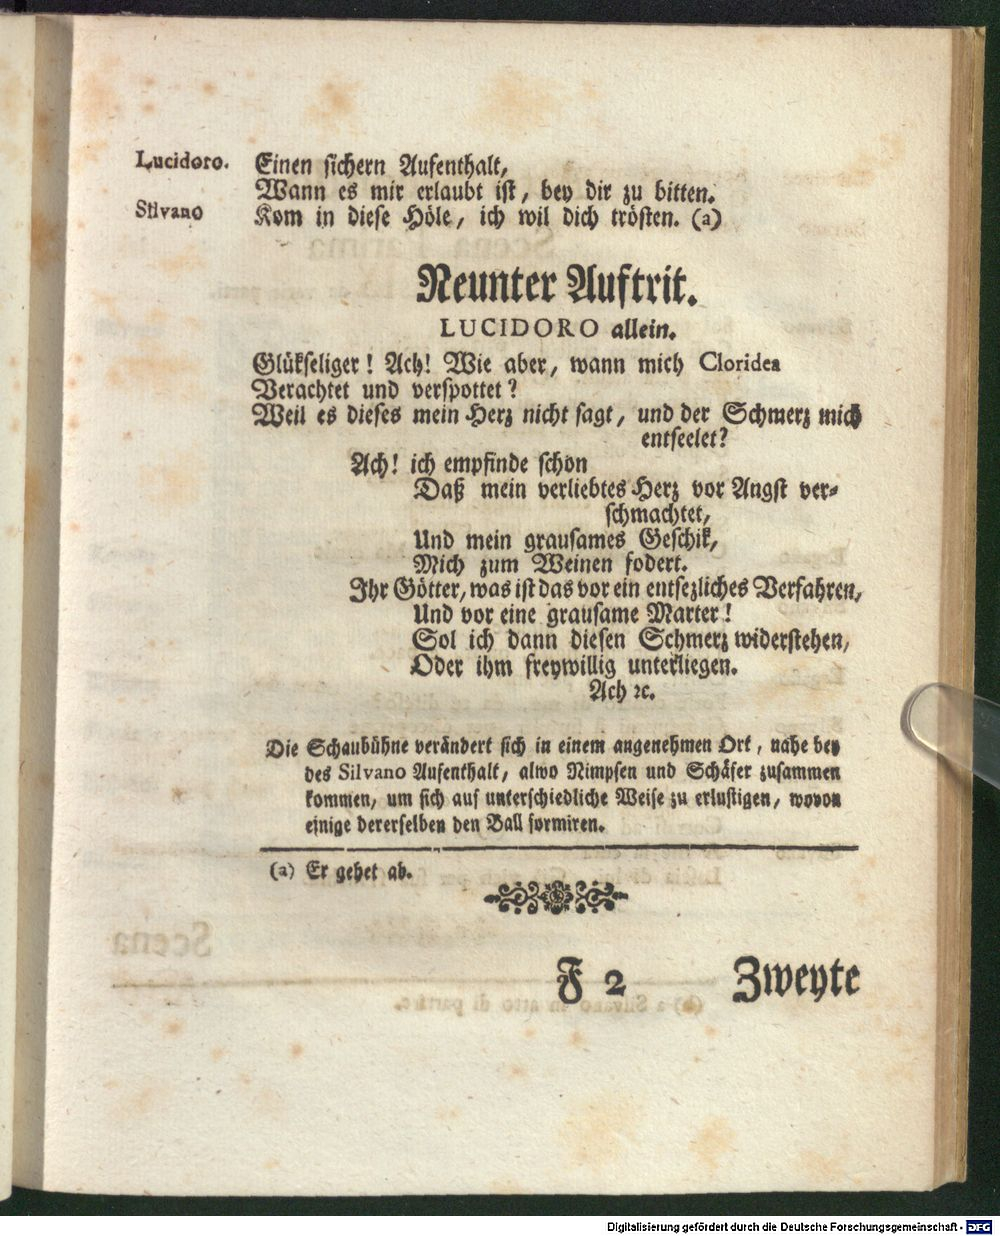 Lucidoro. Einen sichern Aufenthalt,
Wann es mir erlaubt ist, bey dir zu bitten.
Silvano Kom in diese Höle, ich wil dich trösten. (a)
Neunter Auftrit.
LUCIDORO allein.
Glükseliger! Ach! Wie aber, wann mich Cloridea
Verachtet und verspottet?
Weil es dieses mein Herz nicht sagt, und der Schmerz mich
entseelet?
Ach! ich empfinde schon
Daß mein verliebtes Herz vor Angst ver-
schmachtet,
Und mein grausames Geschik,
Mich zum Weinen fodert.
Ihr Götter, was ist das vor ein entsezliches Verfahren,
Und vor eine grausame Marter!
Sol ich dann diesen Schmerz widerstehen,
Oder ihm freywillig unterliegen.
Ach ꝛc.
Die Schaubühne verändert sich in einem angenehmen Ort, nahe bey
des Silvano Aufenthalt, alwo Nimpfen und Schäfer zusammen
kommen, um sich auf unterschiedliche Weise zu erlustigen, wovon
einige dererselben den Ball formiren.
(a) Er gehet ab.
F 2 Zweyte
Digitalisierung gefördert durch die Deutsche Forschungsgemeinschaft - DFG